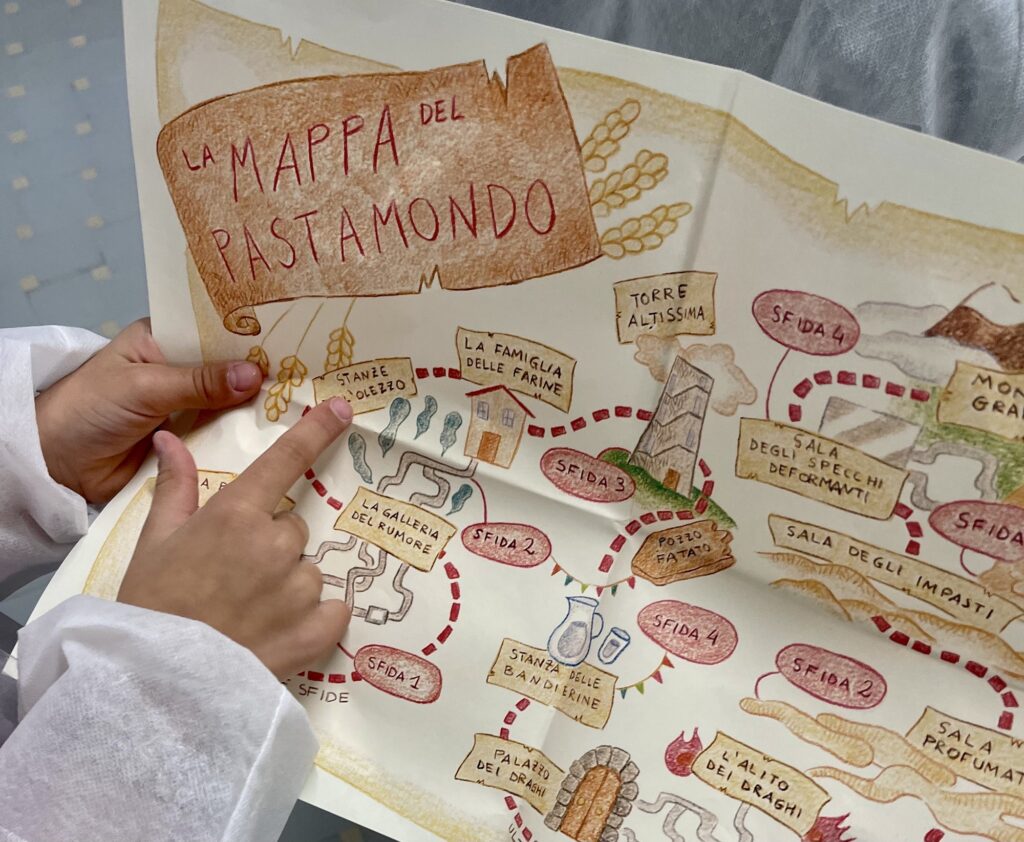 LA MAPPA DEL
PASTAMONDO
TORRE
ALTISSIMA
SFIDA 4
STANZE
LA FAMIGLIA
DELLE FARINE
SALA
DEGLI SPECCHI
DEFORMANTI
SFIDA 3
LA GALLERIA
DEL RUMORE
SFIDA 2
POZZO
FATATO
SALA DEGLI IMPASTI
SFIDA 4
STANZA DELLE
BANDIERINE
SFIDA 1
SFIDE
SFIDA 2
SALA
PALAZZO
DEI DRAGHI
L'ALITO
DEI DRAGHI